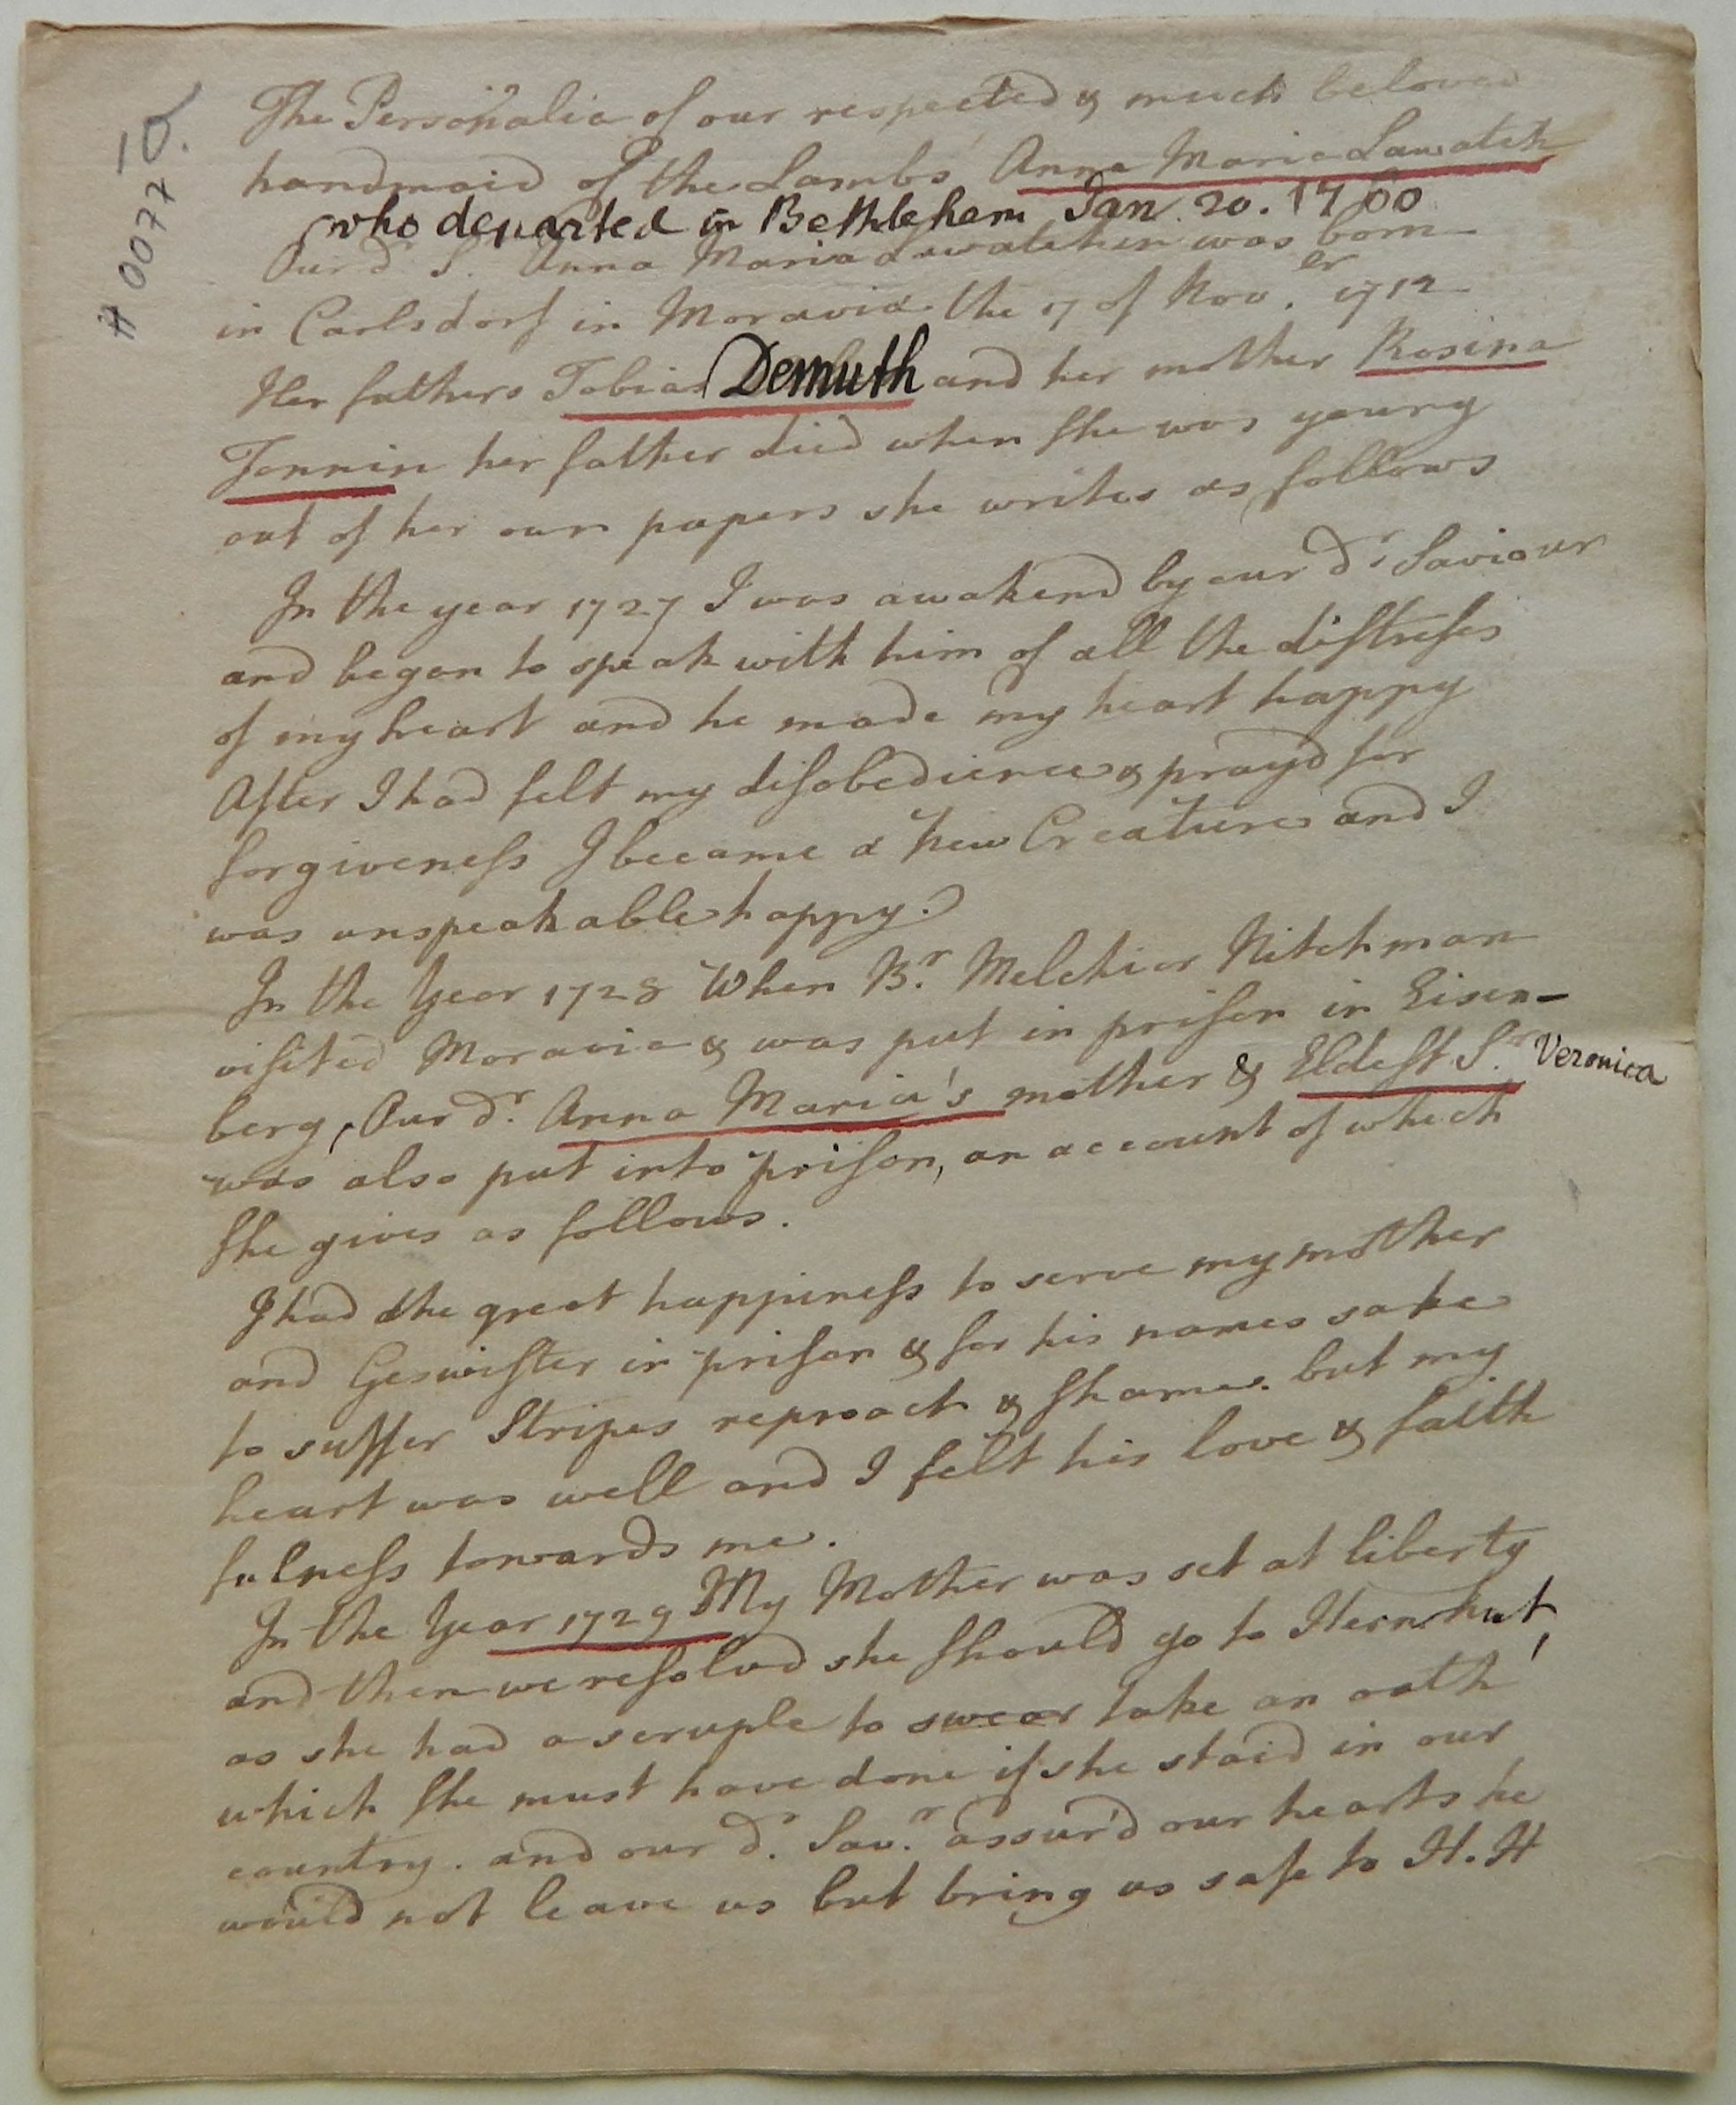 H 0077 d.
The Personalia of our respected & much beloved
handmaid of the Lambs Anna Maria Lawatch
who departed in Bethlehem Jan. 20. 1760
Our d.r S. Anna Maria Lawatchin was born
in Carlsdorf in Moravia the 17 of Nov.er 1712
Her fathers Tobias Demuth and her mother Rosina
Tonnin her father died when she was young
out of her own papers she writes as follows
In the year 1727 I was awakend by our d.r Saviour
and began to speak with him of all the distreses
of my heart and he made my heart happy
After I had felt my disobedience & pray'd for
forgiveness I became a New Creature and I
was unspeakable happy.
In the Year 1728 When B.r Melchior Nitchman
visited Moravia & was put in prison in Eisen-
berg, Our d.r Anna Maria's mother & Eldest S.r Veronica
was also put into prison, an account of which
she gives as follows.
I had the great happiness to serve my mother
and Geswister in prison & for his names sake
to suffer Stripes reproach & shame. but my
heart was well and I felt his love & faith
fulness towards me.
In the Year 1729 My Mother was set at liberty
and then we resolvd she should go to Hernhut,
as she had a scruple to swear take an oath
which she must have done if she staid in our
country. and our d.r Sav.r assur'd our hearts he
would not leave us but bring us safe to H.H